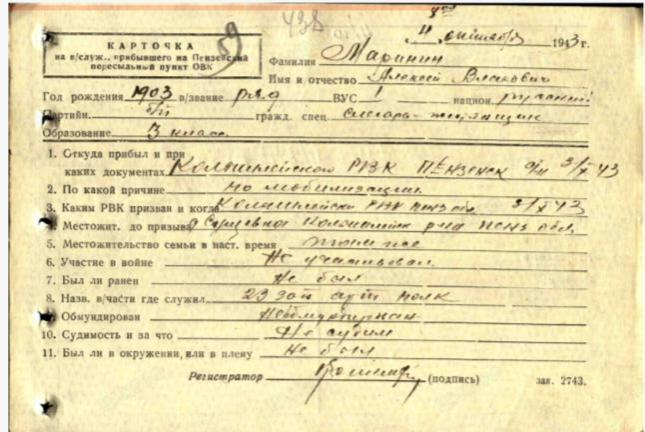 КАРТОЧКА
на в/служ., прибывшего на Пензенский
пересыльный пункт ОВК
59
11 октября 1943 г.
Фамилия Маринин
Имя и отчество Алексей
Год рождения 1903 в/звание ряд ВУС 1 национ. русский
Партийн. б/п гражд. спец.
Образование 3 класса
1. Откуда прибыл и при
каких документах Колышлейского РВК Пензенск 9/X 43
2. По какой причине по мобилизации
3. Каким РВК призван и когда Колышлейск РВК Пенз обл 9/X 43
4. Местожит. до призыва
5. Местожительство семьи в наст. время
6. Участие в войне Не участвовал
7. Был ли ранен Не был
8. Назв. в/части где служил 23 зап арт полк
9. Обмундирован
10. Судимость и за что Не судим
11. Был ли в окружении, или в плену не был
Регистратор (подпись) зак. 2743.